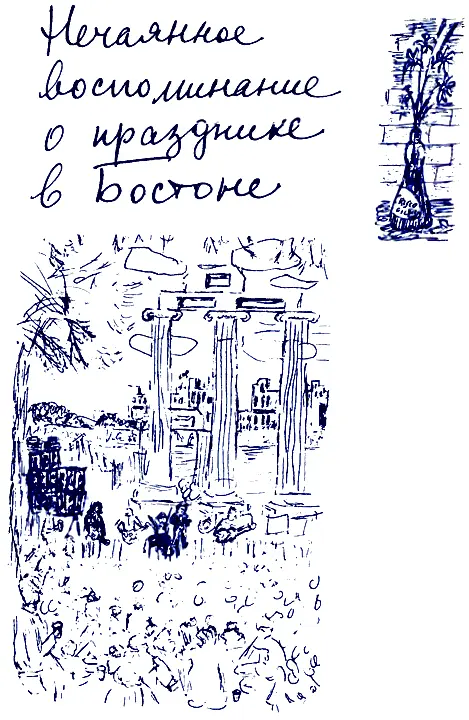 Нечаянное
воспоминание
о празднике
в Бостоне